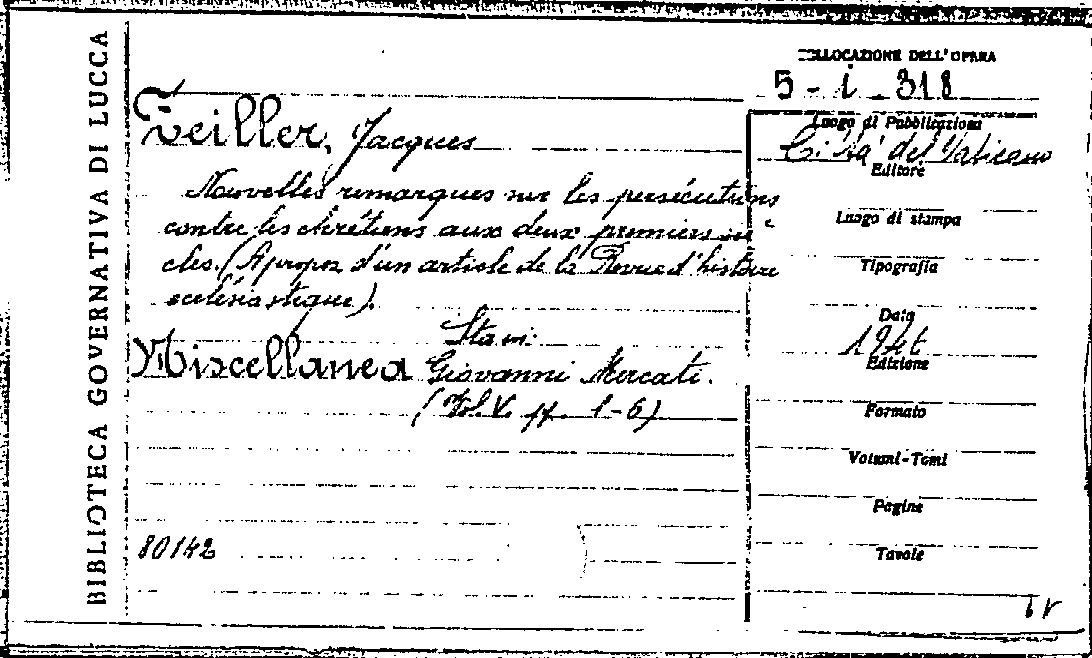 BIBLIOTECA GOVERNATIVA DI LUCCA
COLLOCAZIONE DELL'OPERA
5 - i - 318
Zeiller, Jacques
Nouvelles remarques sur les persécutions
contre les chrétiens aux deux premiers siè
cles. (A propos d'un article de la Revue d'histoire
ecclésiastique).
Sta in:
Miscellanea Giovanni Mercati.
(Vol. V. pp. 1-6)
80142
Luogo di Pubblicazione
Città del Vaticano
Editore
Luogo di stampa
Tipografia
Data
1946
Edizione
Formato
Volumi-Tomi
Pagine
Tavole